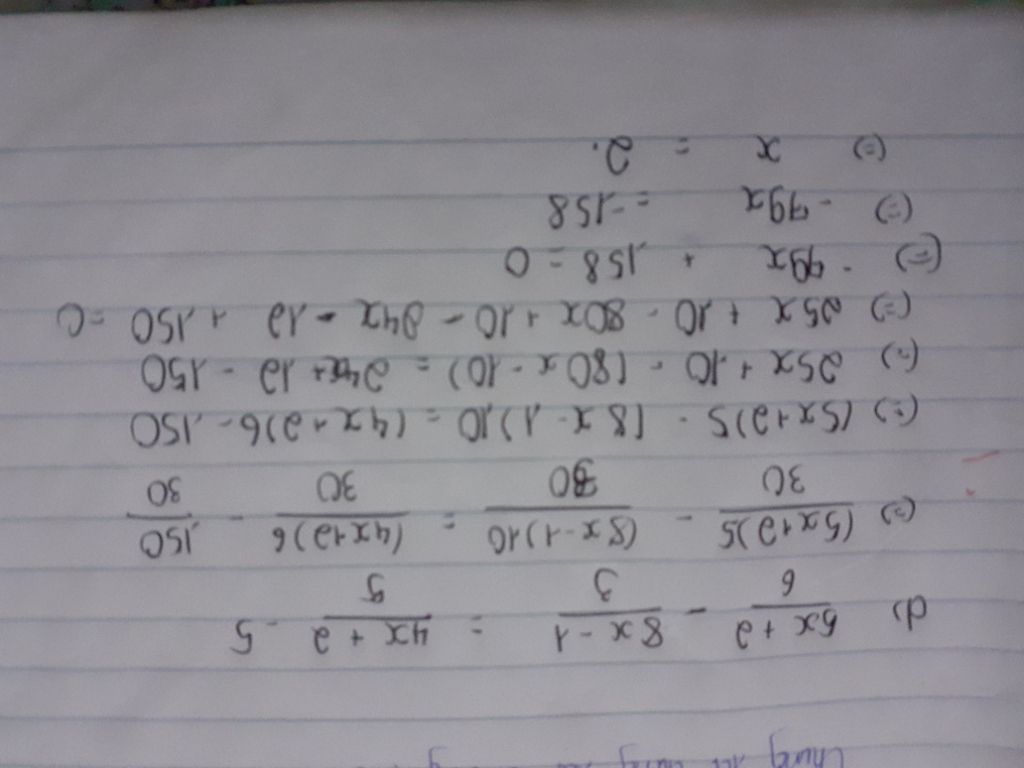 d) (5x + 2)/6 - (8x - 1)/3 = (4x + 2)/5 - 5
(=) (5x+2)5/30 - (8x-1)10/30 = (4x+2)6/30 - 150/30
(=) (5x+2)5 - (8x-1)10 = (4x+2)6 - 150
(=) 25x + 10 - (80x - 10) = 24x + 12 - 150
(=) 25x + 10 - 80x + 10 - 24x - 12 + 150 = 0
(=) - 79x + 158 = 0
(=) - 79x = -158
(=) x = 2.